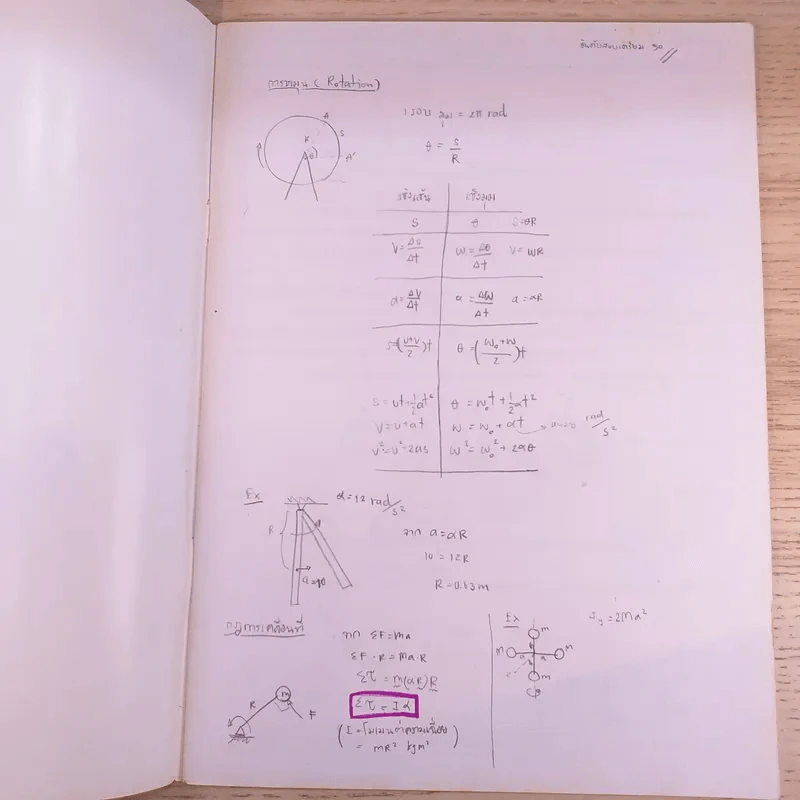 การหมุน (Rotation)
A
R
S
θ
A'
1 รอบ มุม = 2π rad
θ = S/R
เชิงเส้น เชิงมุม
S θ S=θR
V = Δs/Δt ω = Δθ/Δt V = ωR
a = ΔV/Δt α = Δω/Δt a = αR
s=(u+v/2)t θ = (ω₀+ω/2)t
S = ut+½at² θ = ω₀t + ½αt²
V = u+at ω = ω₀ + αt rad/s²
v² = u²+2as ω² = ω₀² + 2αθ
Ex α = 12 rad/s²
R
a=10
จาก a = αR
10 = 12R
R = 0.83 m
กฎการเคลื่อนที่
จาก ΣF = ma
ΣF · R = ma · R
Στ = m(αR)R
Στ = Iα
(I = โมเมนต์ความเฉื่อย
= mR² kgm²)
R
m
F
Ex
m
M
M
a
a
m
I y = 2Ma²